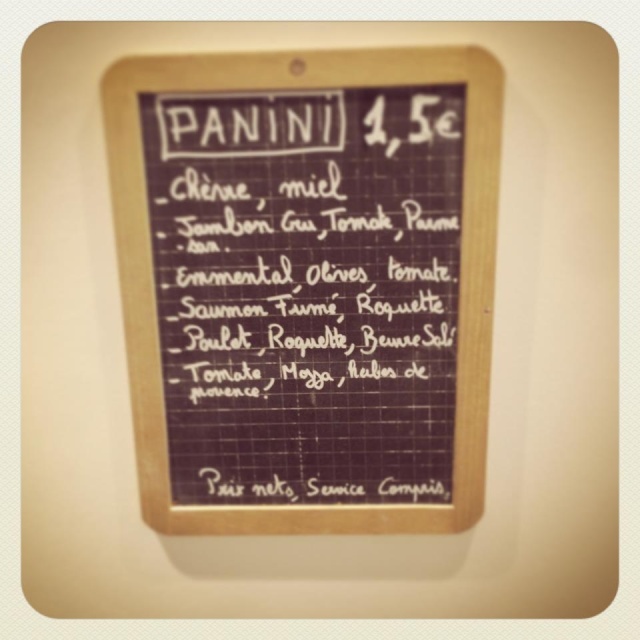 PANINI 1,5€
- Chèvre, miel
- Jambon Cru, Tomate, Parme
-san.
- Emmental, Olives, tomate.
- Saumon Fumé, Roquette
- Poulet, Roquette, Beurre Salé
- Tomate, Mozza, herbes de
provence.
Prix nets, Service Compris.